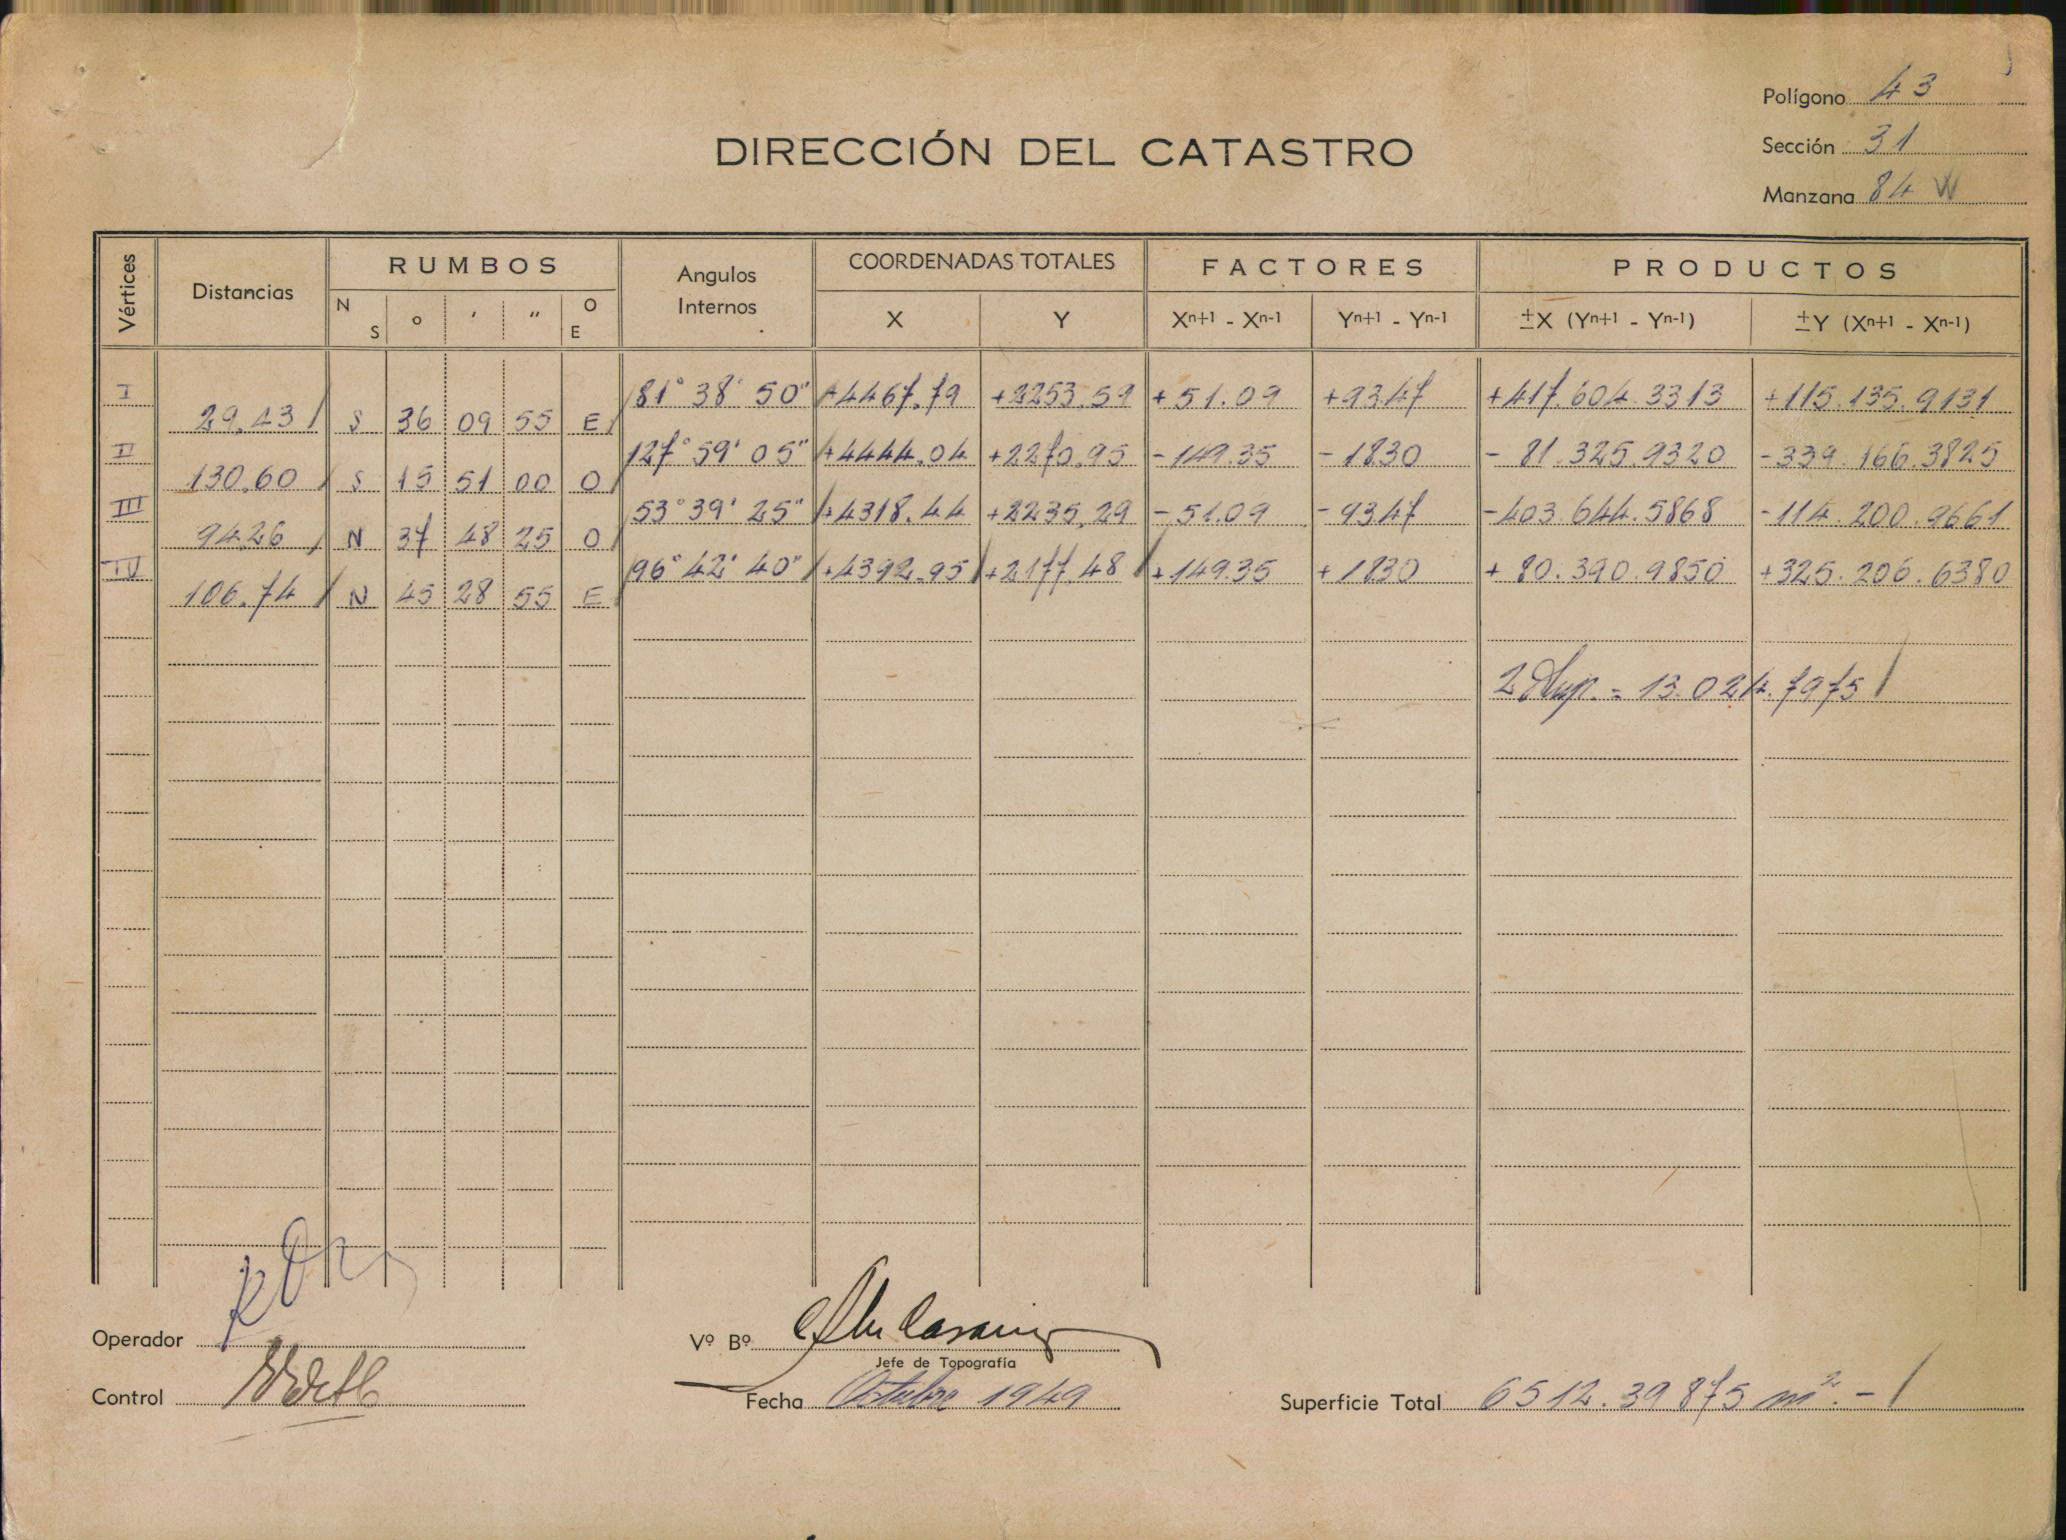 Polígono 43
DIRECCIÓN DEL CATASTRO
Sección 31
Manzana 84 W
Vértices Distancias RUMBOS Angulos Internos COORDENADAS TOTALES FACTORES PRODUCTOS
N S ° ' " O E X Y Xn+1 - Xn-1 Yn+1 - Yn-1 ±X (Yn+1 - Yn-1) ±Y (Xn+1 - Xn-1)
I 81° 38' 50" +4467.79 +2253.59 +51.09 +93.47 +417.604.3313 +115.135.9131
29.43 S 36 09 55 E
II 127° 59' 05" +4444.04 +2270.95 -149.35 -1830 - 81.325.9320 -339.166.3825
130.60 S 15 51 00 O
III 53° 39' 25" +4318.44 +2235.29 -51.09 -9347 -403.644.5868 -114.200.9661
94.26 N 37 48 25 O
IV 96° 42' 40" +4392.95 +2177.48 +149.35 +1830 + 80.390.9850 +325.206.6380
106.74 N 45 28 55 E
2 Sup. = 13.024.7975
Operador
Vº Bº
Jefe de Topografía
Control
Fecha Octubre 1949
Superficie Total 6512.39875 m². -